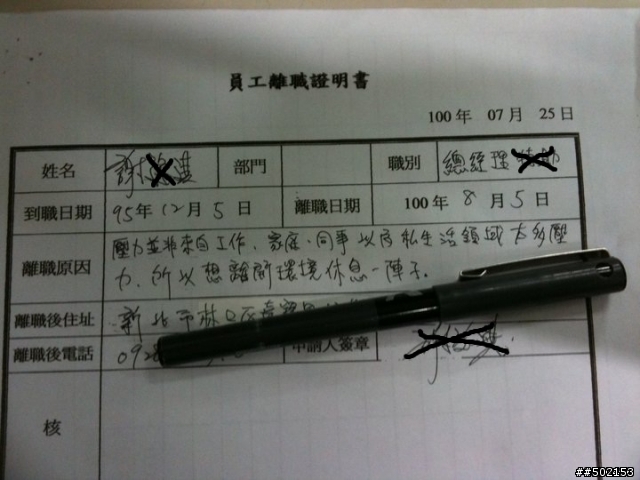 員工離職證明書
100 年 07 月 25 日
姓名 謝 部門 職別 總經理
到職日期 95年12月5日 離職日期 100年8月5日
離職原因 壓力並非來自工作、家庭、同事以府私生活領域太多壓
力、所以想 環境休息一陣子.
離職後住址 新北市林口區
離職後電話 092 申請人簽章
核
##502153